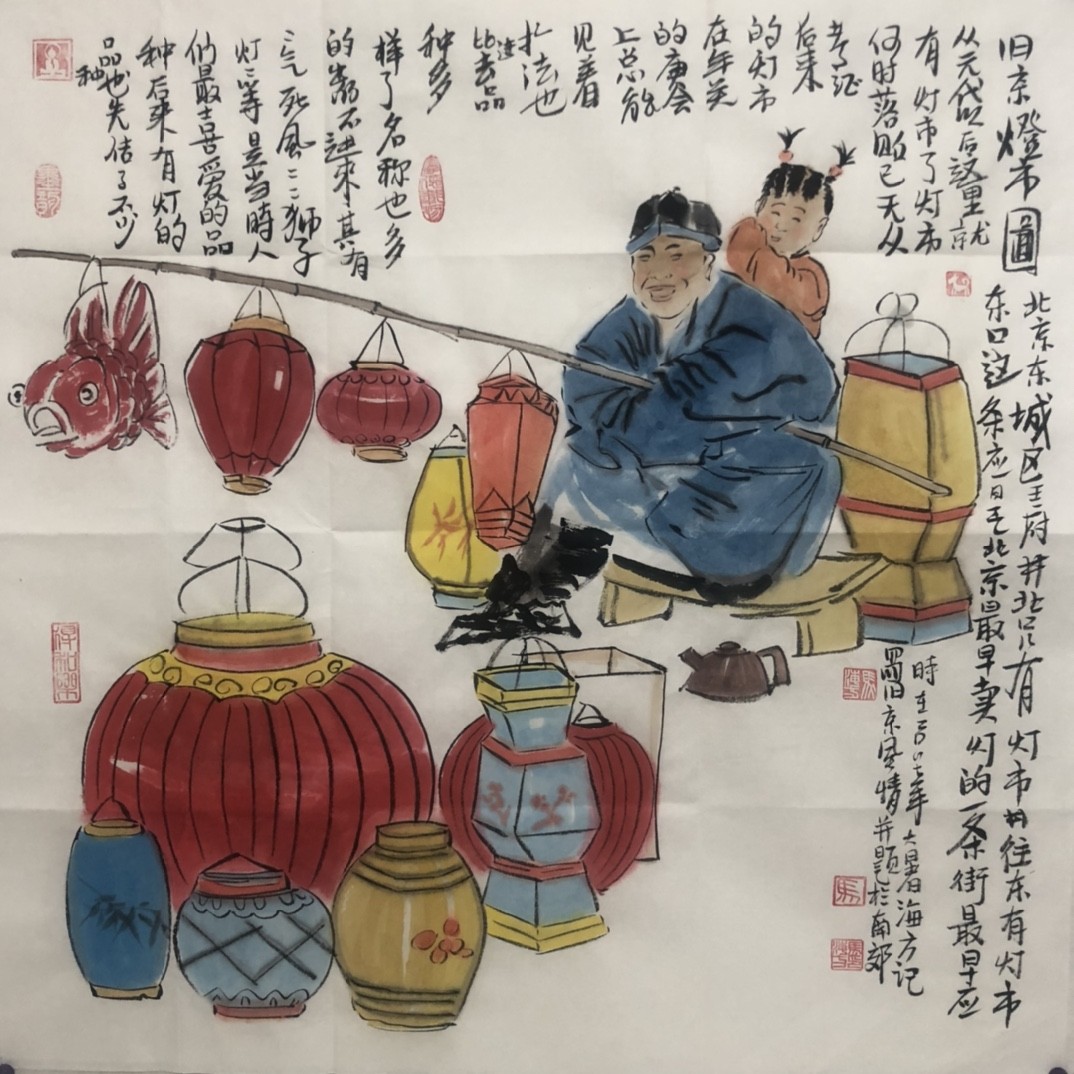 旧京燈市圓
北京东城区王府井北口儿有灯市口往东有灯市
东口这条应日是北京最早卖灯的一条街最早应
从元代以后这里就
有灯市了灯市
何时落败已无从
考证
后来
的灯市
在每关
的庙会
上总能
见着
扎法也
比过去品
种多
样了名称也多
的数不过来其有
气死风狮子
灯等是当時人
们最喜爱的品
种后来有灯的
品种也先传了不少
時在二〇一七年大暑海方记
旧京风情并题於南郊